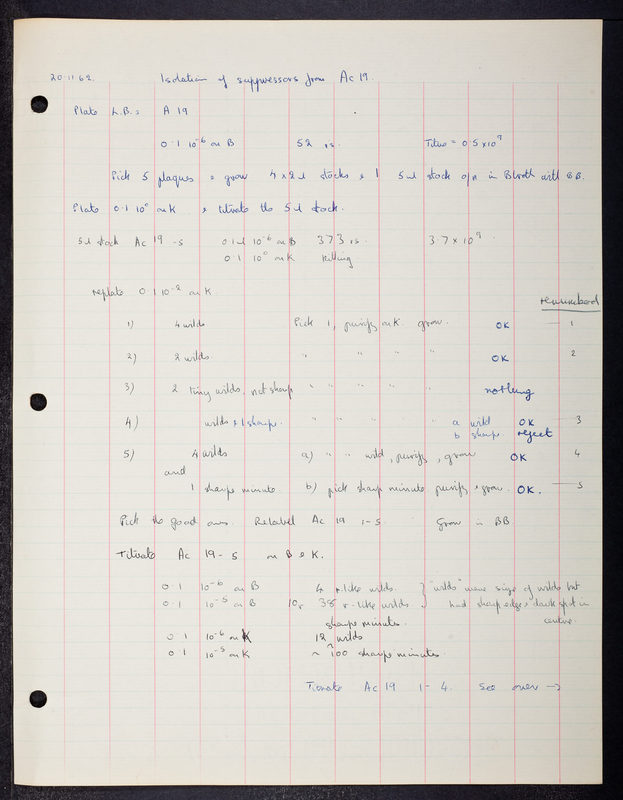 20.11.62. Isolation of suppressors from Ac 19.
Plate L.B.: A 19
0.1 10⁻⁶ on B 52 rs. Titre = 0.5 x 10⁹
Pick 5 plaques & grow 4 x 2ml stocks & 1 5ml stock o/n in B broth with BB.
Plate 0.1 10⁰ on K & titrate the 5ml stock.
5ml stock Ac 19 -5 0.1ml 10⁻⁶ on B 373 rs. 3.7 x 10⁹
0.1 10⁰ on K killing
replate 0.1 10⁻² on K.
renumbered
1) 4 wilds Pick 1, purify on K. grow. OK — 1
2) 2 wilds. " " " " OK 2
3) 2 tiny wilds, not sharp " " " " nothing
4) wilds & 1 sharp. " " " " a wild OK — 3
b sharp reject
5) 4 wilds a) " " wild, purify, grow OK 4
and
1 sharp minute. b) pick sharp minute purify & grow. OK. — 5
Pick the good ones. Relabel Ac 19 1-5. Grow in BB.
Titrate Ac 19-5 on B & K.
0.1 10⁻⁶ on B 4 r-like wilds. } "wilds" were size of wilds but
0.1 10⁻⁵ on B 10r 38 r-like wilds had sharp edge & dark spot in
sharp minutes. centre.
0.1 10⁻⁶ on K 12 wilds
0.1 10⁻⁵ on K ~ 100 sharp minutes.
Titrate Ac 19 1-4. see over →